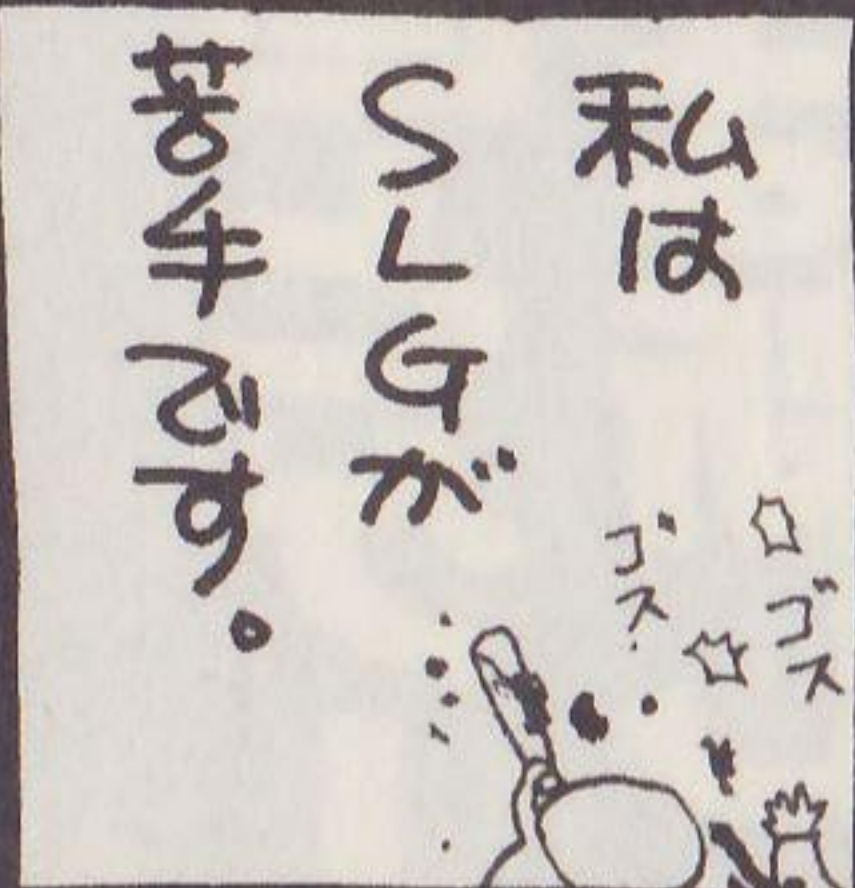 私は
SLGが
苦手です。
ゴス
ゴス